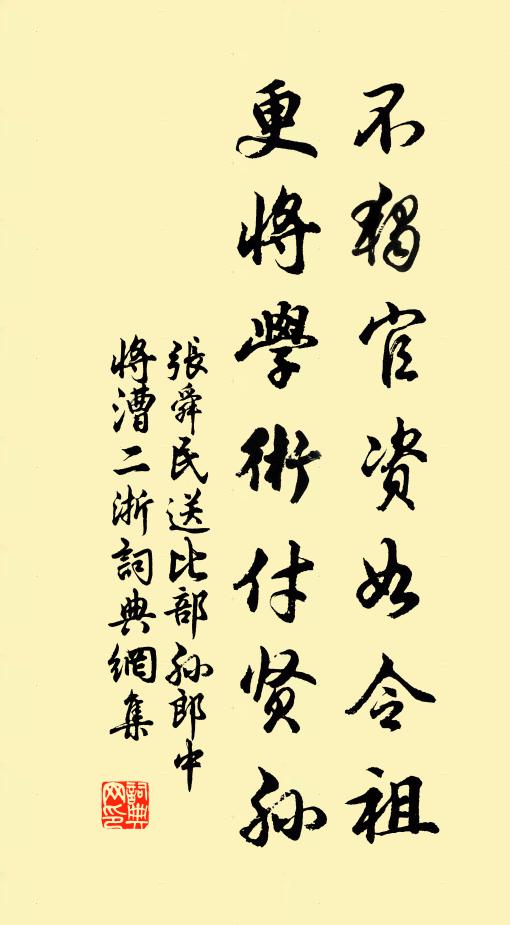 不獨官资如令祖
更將學術付贤孙
張舜民送比部孙郎中
將漕二浙詞典網集
詞典网印